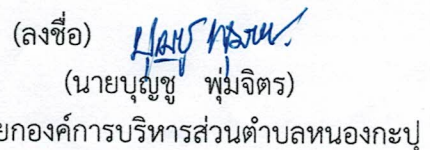 (ลงชื่อ)
(นายบุญชู พุ่มจิตร)
ยกองค์การบริหารส่วนตำบลหนองกะปุ